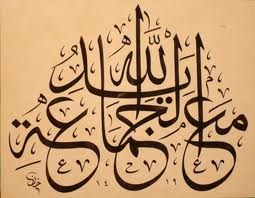 يد الله
مع الجماعة
١٤١٩